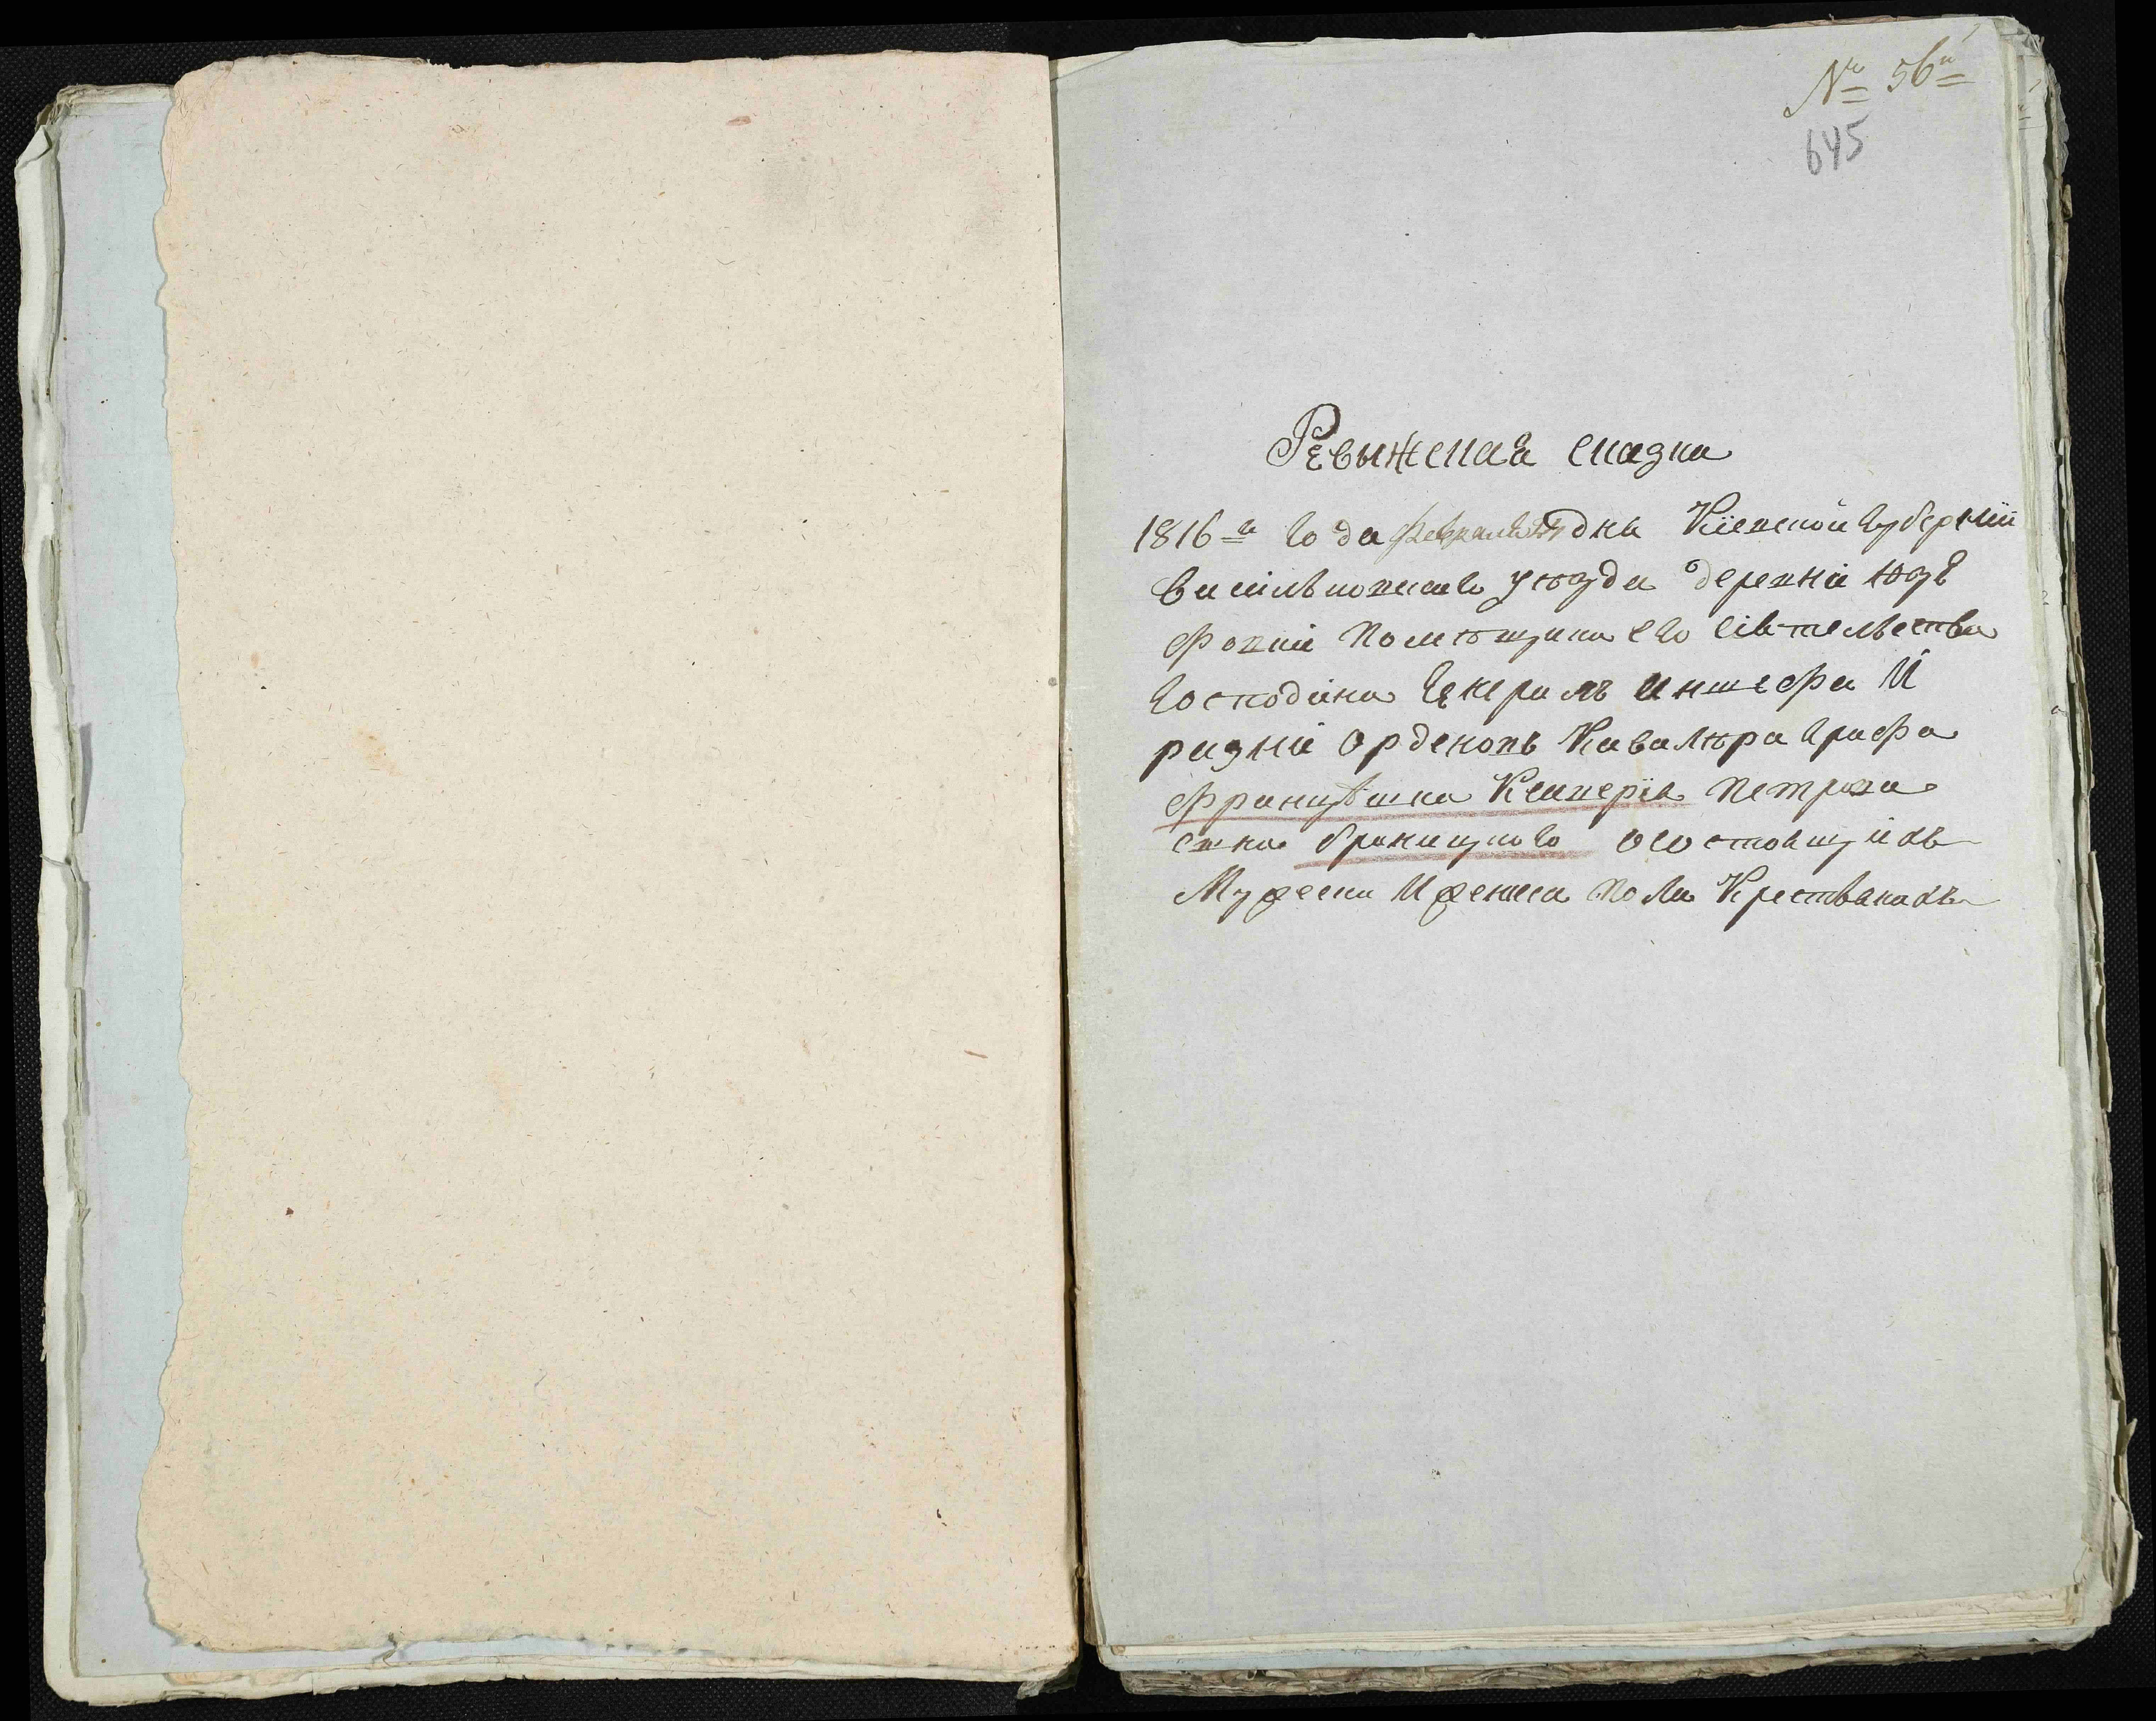 № 56й
645
Ревыжская сказка
1816го года февраля дня Кіевской губерніи
василковскаго уѣзда деревни Юзе
фовки помѣщика его сіятельства
господина генералъ Иншефа И
разни орденовъ Кавалѣра графа
Францѣшка Ксаверія петрова
сына браницкого о состоящихъ
Мужеска И женска пола Крестьянахъ